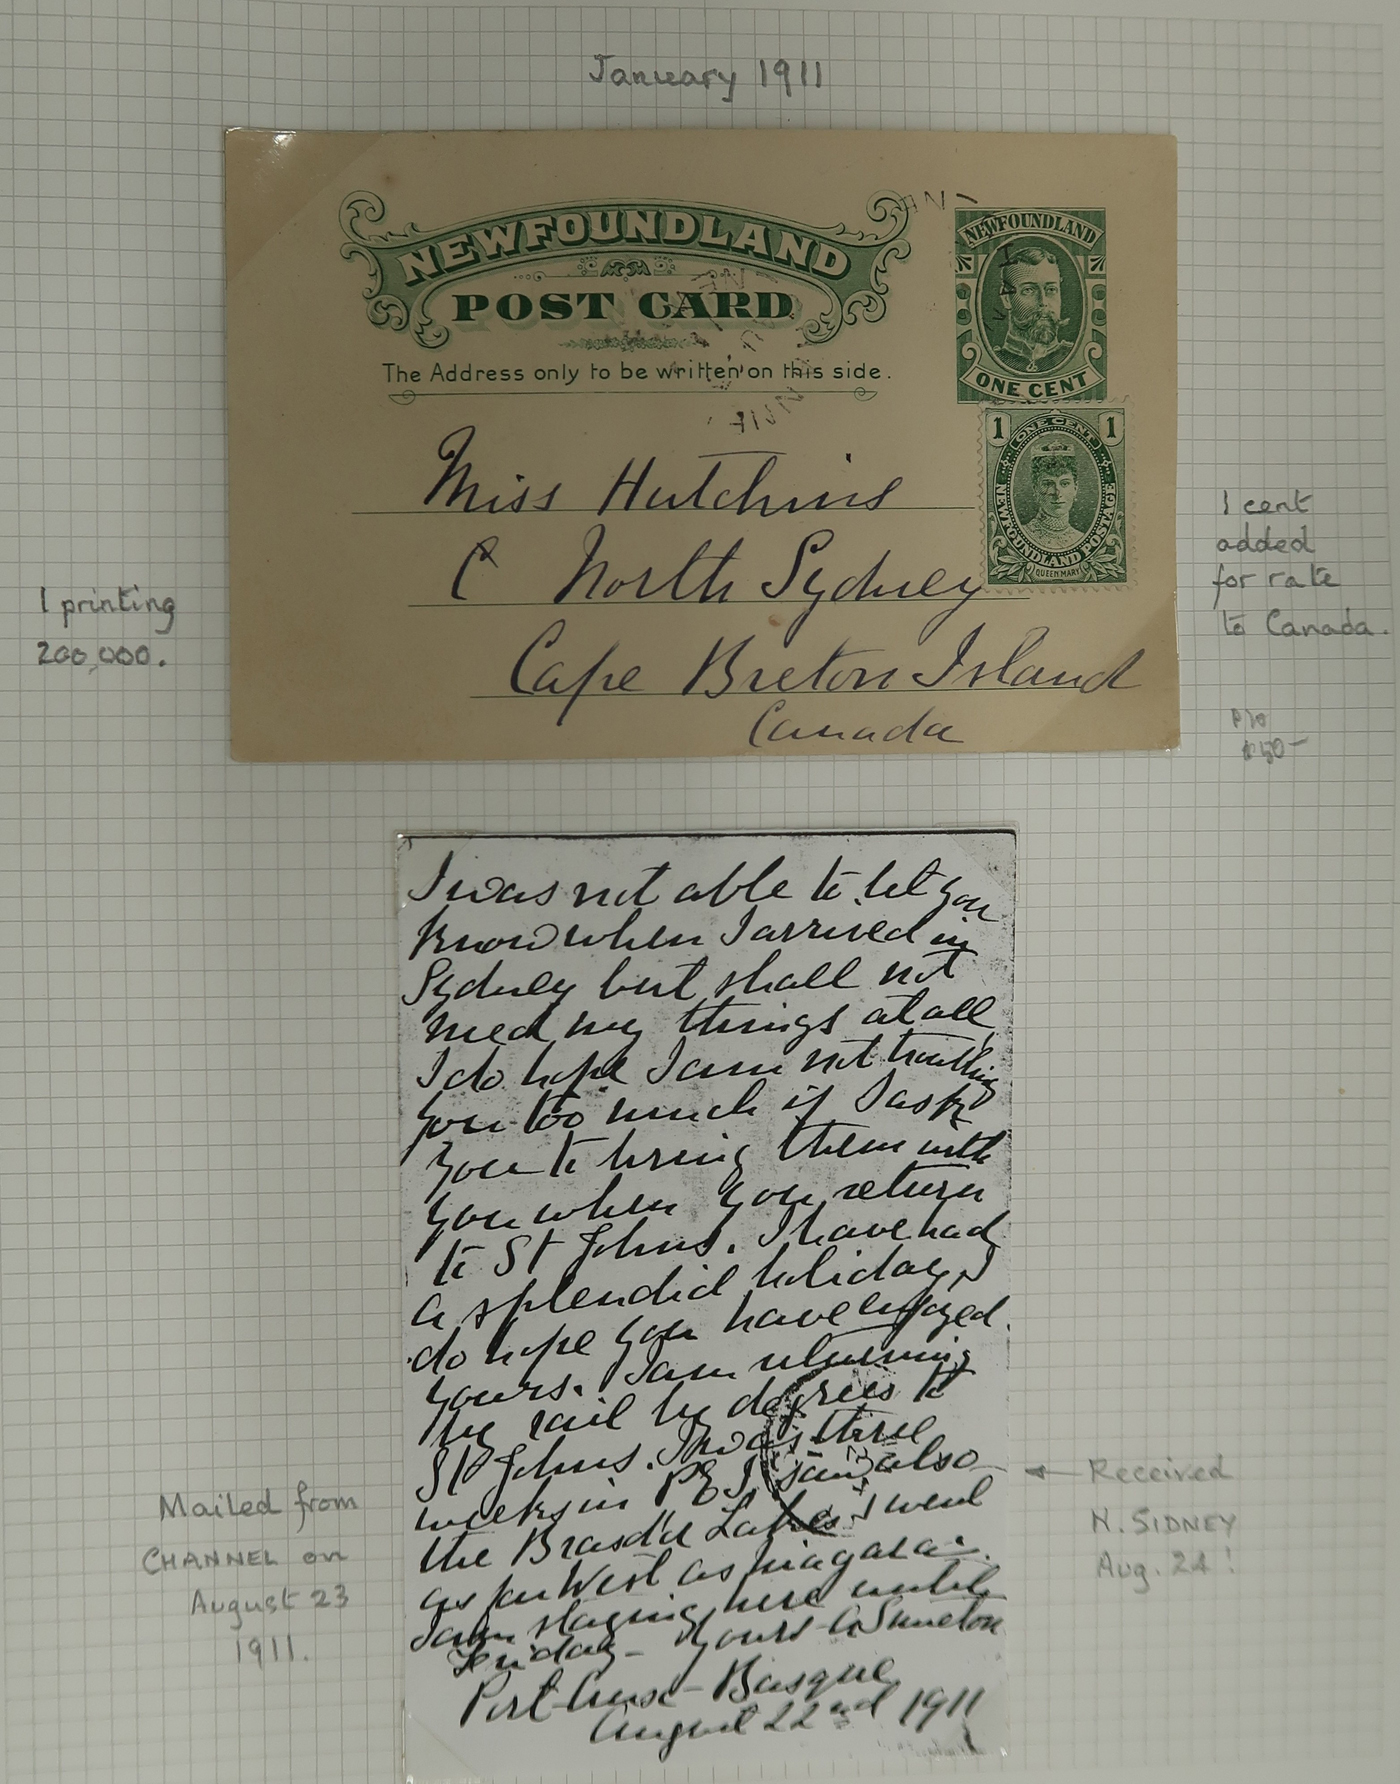 January 1911
NEWFOUNDLAND
POST CARD
The Address only to be written on this side.
NEWFOUNDLAND
ONE CENT
1 ONE CENT 1
NEWFOUNDLAND POSTAGE
QUEEN MARY
Miss Hutchins
C North Sydney
Cape Breton Island
Canada
1 printing
200,000.
1 cent
added
for rate
to Canada.
I was not able to let you
know when I arrived in
Sydney but shall not
need my things at all,
I do hope I am not troubling
you too much if I ask
you to bring them with
you when you return
to St Johns. I have had
a splendid holiday, I
do hope you have enjoyed
yours. I am returning
by rail by degrees to
St Johns. I was three
weeks in PEI saw also
the Brasd'd Lakes I went
as far West as Niagara.
I am staying here until
Friday - Yours
Port Basque
August 22nd 1911
Mailed from
CHANNEL on
August 23
1911.
Received
N. SIDNEY
Aug. 24!